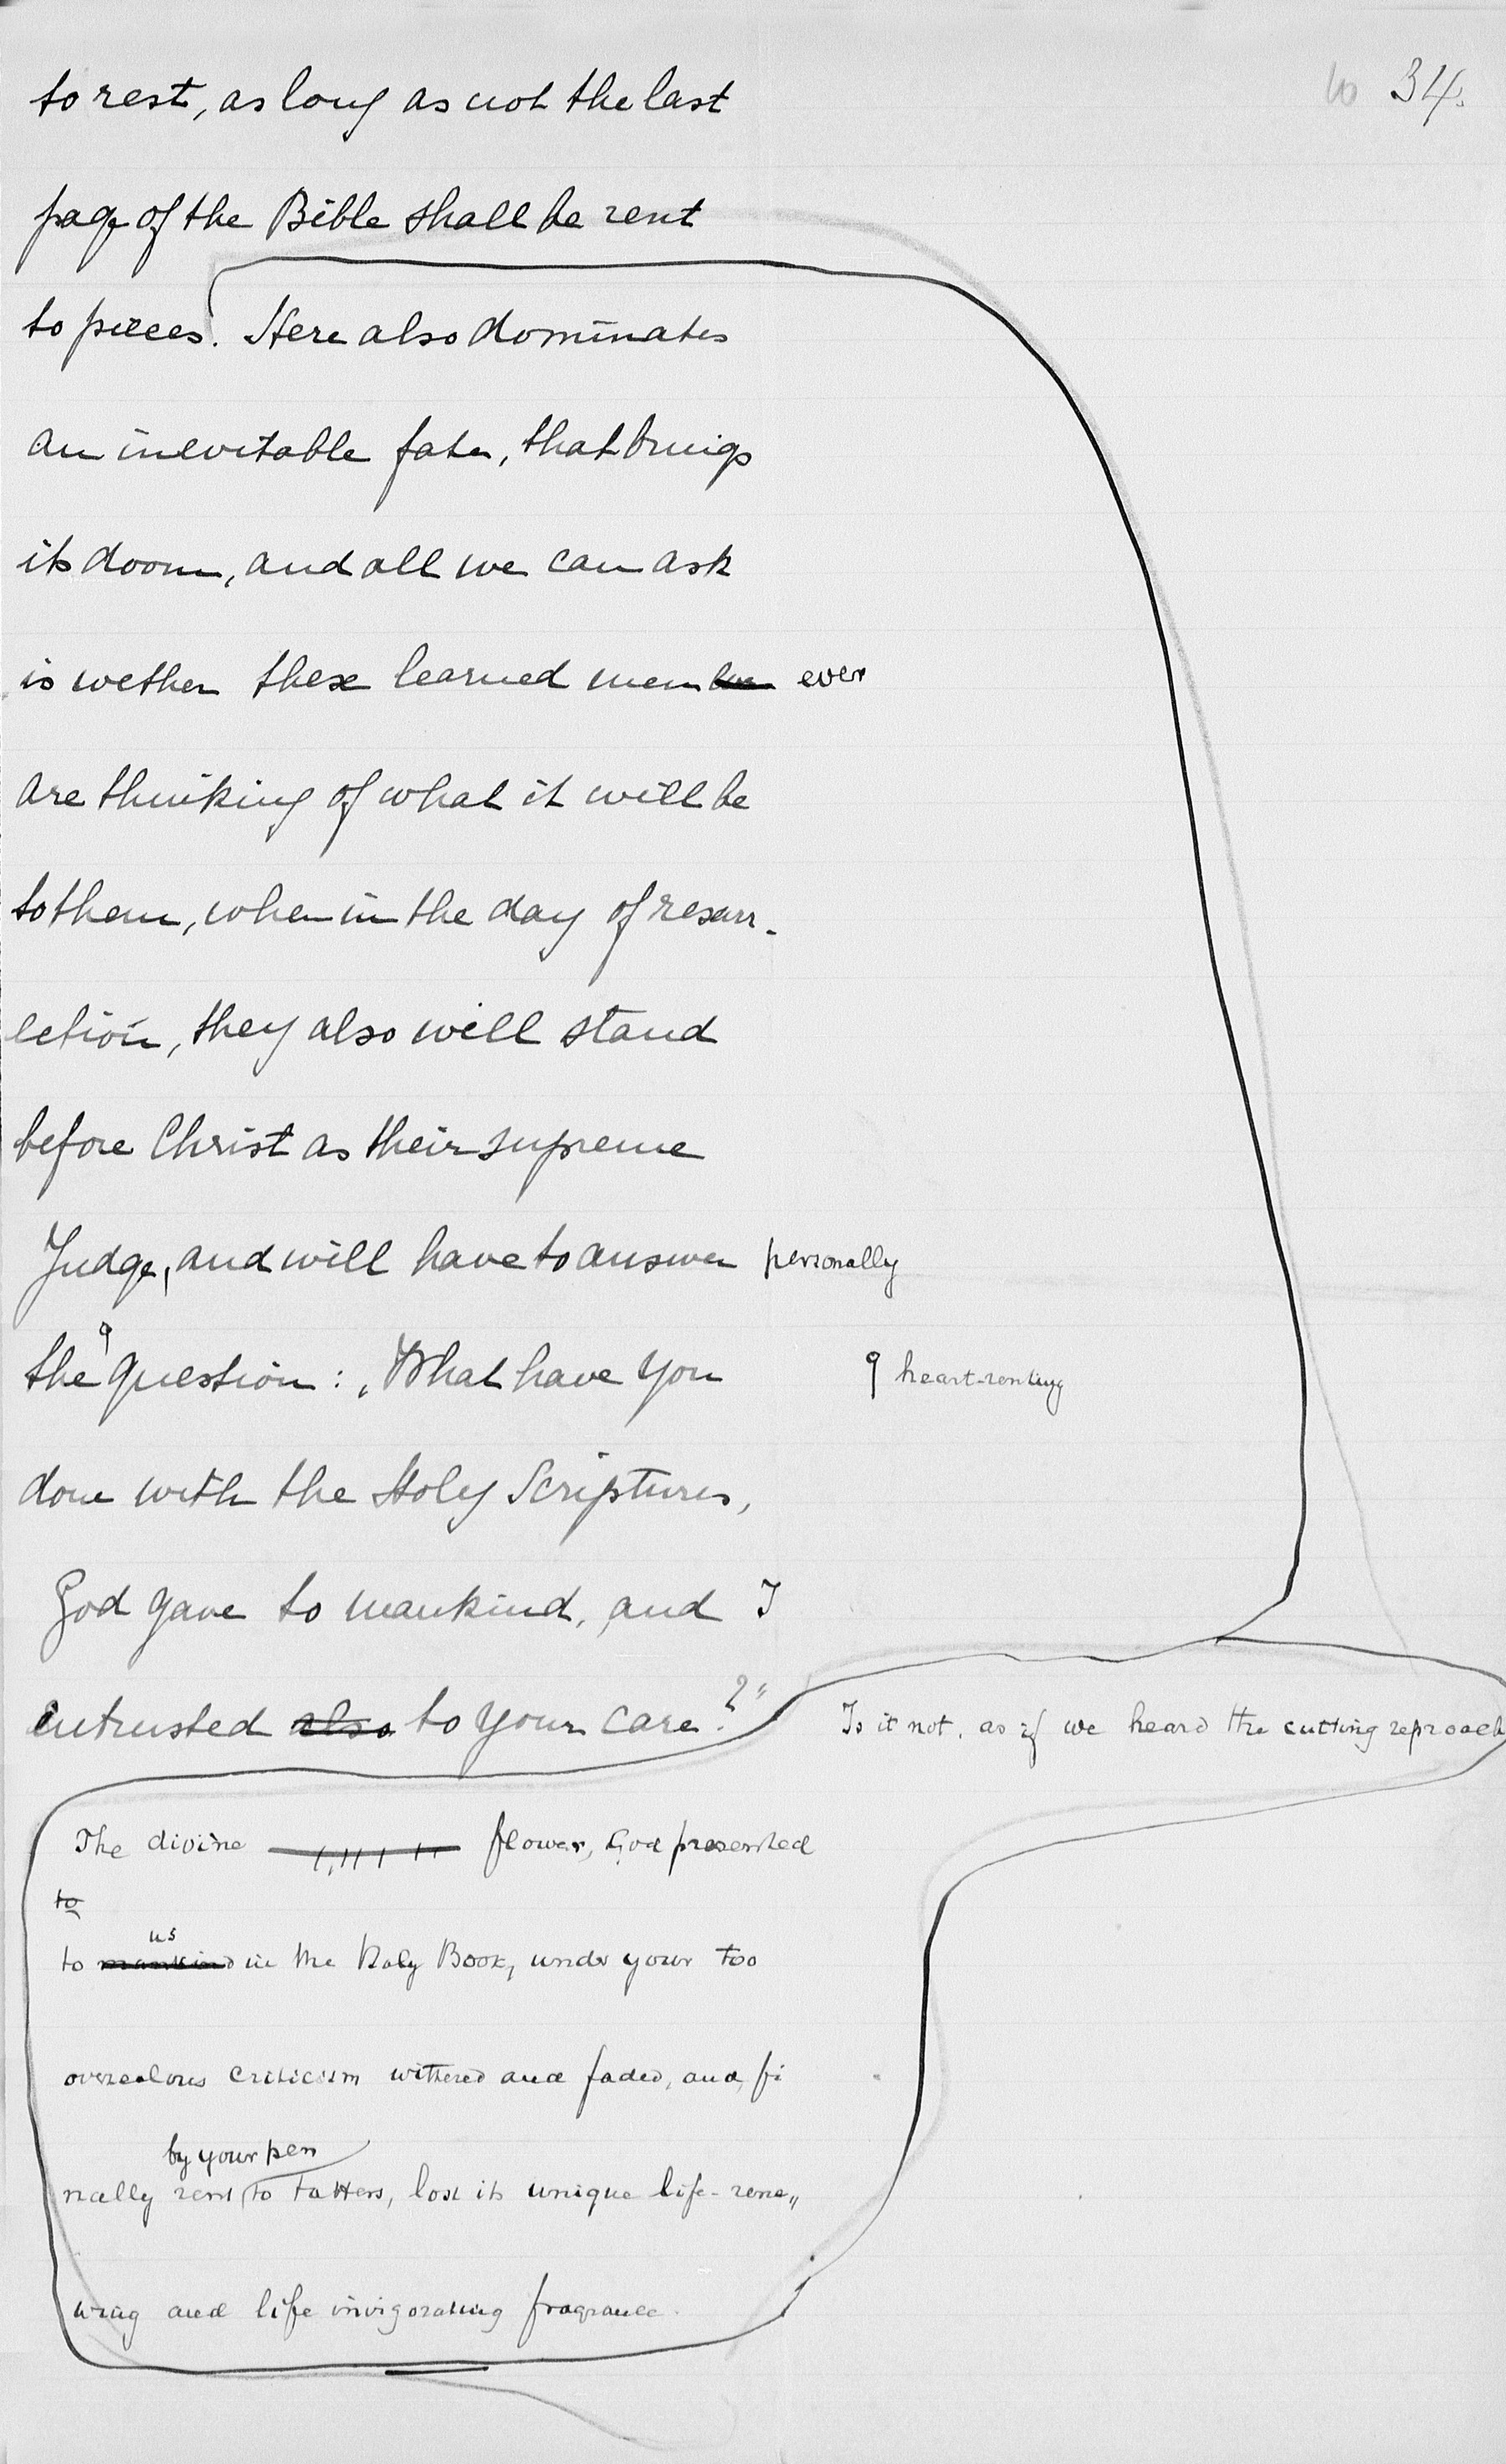 34.
to rest, as long as not the last
page of the Bible shall be rent
to pieces. Here also dominates
an inevitable fate, that brings
its doom, and all we can ask
is wether these learned men ever
are thinking of what it will be
to them, when in the day of resur-
ection, they also will stand
before Christ as their supreme
Judge, and will have to answer personally
the question: „What have you
heart-renting
done with the Holy Scriptures,
God gave to mankind, and I
entrusted also to your care?"
Is it not, as if we heard the cutting reproach
The divine flower, God presented
to
us
to mankind in the Holy Book, under your too
overzealous criticism withered and faded, and fi
by your pen
nally rent to tatters, lost its unique life-rene„
wing and life invigorating fragrance.